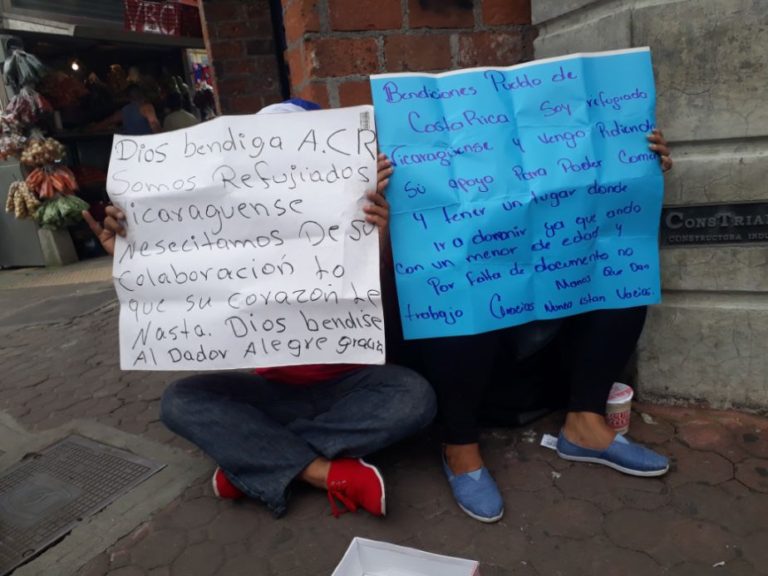 Dios bendiga A.CR
Somos Refujiados
Nicaraguense
Nesecitamos De su
Colaboración Lo
que su corazon Le
Nasta. Dios bendise
Al Dador Alegre gracias
Bendiciones Pueblo de
Costa Rica Soy refugiado
Nicaragüense y Vengo Pidiendo
Su apoyo Para Poder Comer
y tener un lugar donde
Ir a dormir ya que ando
con un menor de edad y
Por falta de documento no
trabajo Gracias Manos Que Dan
Nunca estan Vacias.
CONSTRIAL
CONSTRUCTORA INDU